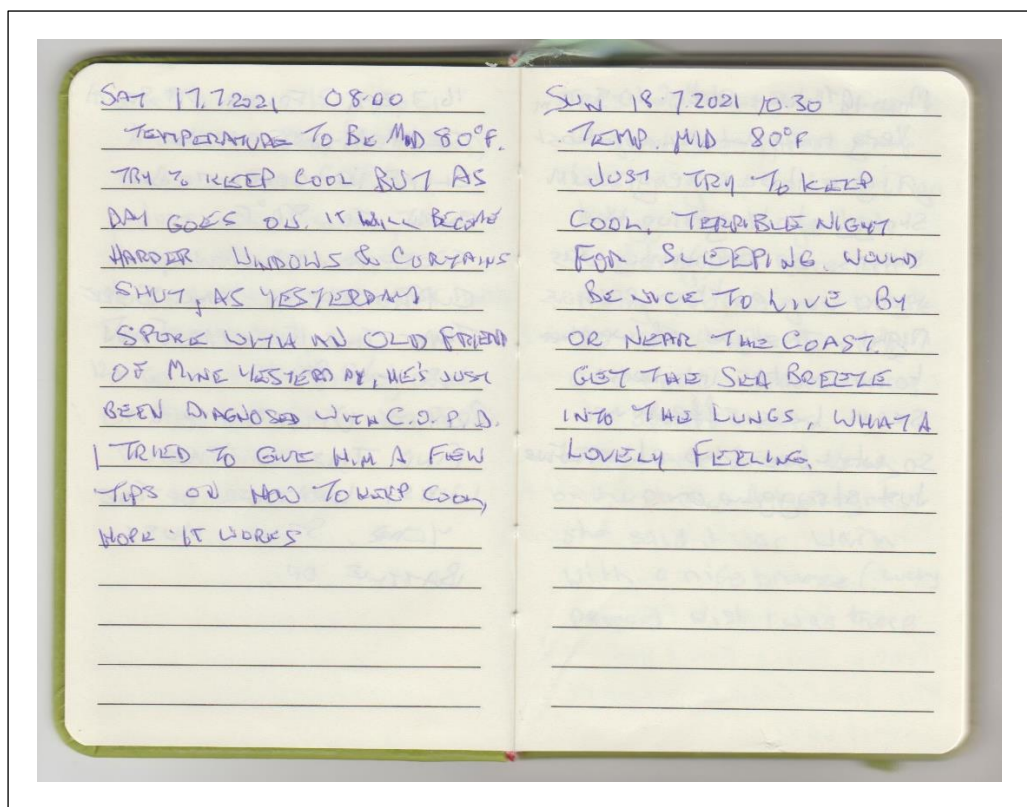 SAT 17.7.2021 08.00
TEMPERATURE TO BE MID 80°F.
TRY TO KEEP COOL BUT AS
DAY GOES ON. IT WILL BECOME
HARDER WINDOWS & CURTAINS
SHUT, AS YESTERDAY
SPOKE WITH AN OLD FRIEND
OF MINE YESTERDAY, HE'S JUST
BEEN DIAGNOSED WITH C.O.P.D.
I TRIED TO GIVE HIM A FEW
TIPS ON HOW TO KEEP COOL,
HOPE IT WORKS
SUN 18.7.2021 10.30
TEMP. MID 80°F
JUST TRY TO KEEP
COOL, TERRIBLE NIGHT
FOR SLEEPING, WOULD
BE NICE TO LIVE BY
OR NEAR THE COAST.
GET THE SEA BREEZE
INTO THE LUNGS, WHAT A
LOVELY FEELING.